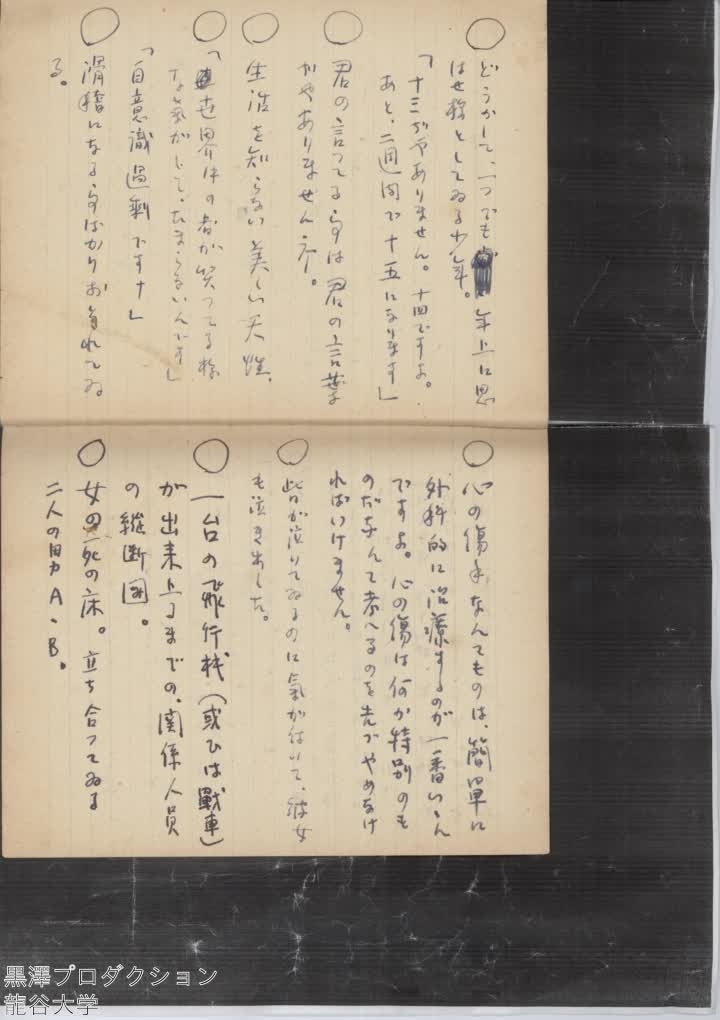 ○どうかして、一つでも年上に思
はせ様としてゐる少年。
「十三ぢやありません。十四ですよ。
あと、二週間で十五になります」
○君の言つてる事は君の言葉
ぢやありませんネー。
○生活を知らない美しい天性、
○「世界中の者が笑つてる様
な氣がして、たまらないんです」
「自意識過剰ですナ」
○滑稽になる事ばかりおそれてゐ
る。
○心の傷手なんてものは、簡單に
外科的に治療するのが一番いゝん
ですよ。心の傷は何か特別のも
のだなんて考へるのを先づやめなけ
ればいけません。
○皆が泣いてゐるのに氣が付いて、彼女
も泣き出した。
○一台の飛行機(或ひは戰車)
が出来上るまでの、関係人員
の縦断図。
○女の死の床。立ち合つてゐる
二人の男A・B。
黒澤プロダクション
龍谷大学